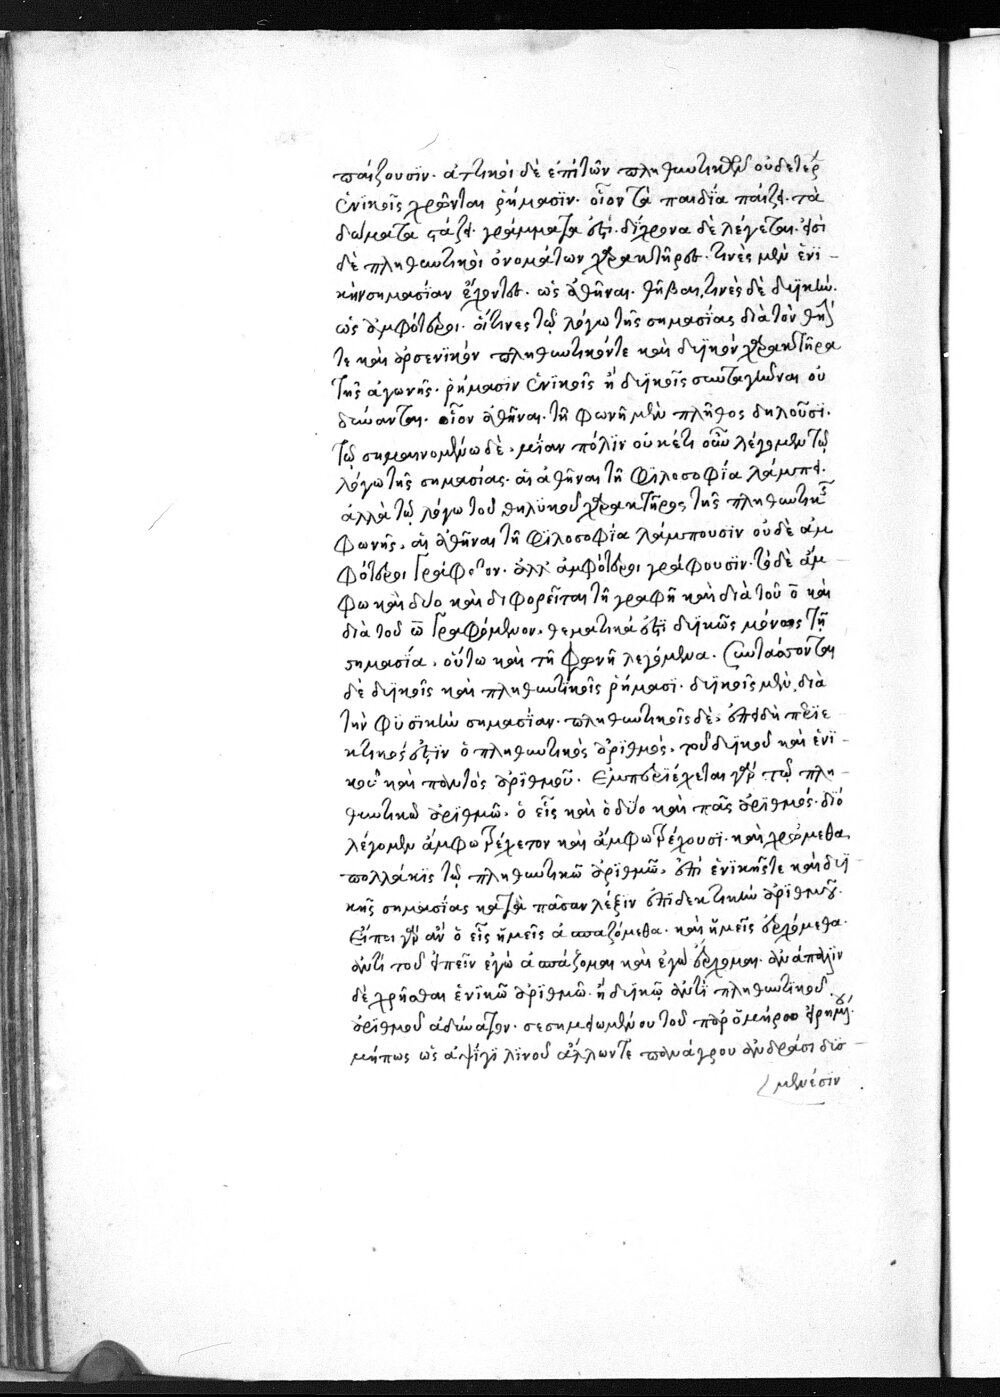 παίζουσϊν. ἀττικοὶ δὲ ἐπὶ τῶν πληθυντικῶν οὐδετέρ
ἑνικοῖς χρῶνται ῥήμασϊν. οἷον τὰ παιδία παίζει. τὰ
δώματα στάζει. γράμματα ἐστί. δίχρονα δὲ λέγεται. εἰσὶ
δὲ πληθυντικοὶ ὀνομάτων χαρακτῆρες. τινὲς μὲν ἑνϊ-
κὴν σημασίαν ἔχοντες. ὡς ἀθῆναι. θῆβαι, τινὲς δὲ δυϊκήν.
ὡς ἀμφότεροι. οἵτινες τῷ λόγω τῆς σημασίας διὰ τὸν θη
τε καὶ ἀρσενϊκόν πληθυντικόν τε καὶ δυϊκόν χαρακτῆρα
τῆς φωνῆς. ῥήμασϊν ἑνϊκοῖς ἢ δυϊκοῖς συνταγῆναι οὐ
δύνανται. οἷον ἀθῆναι. τῆ φωνῆ μὲν πλῆθος δηλοῦσϊ.
τῷ σημαινομένω δὲ, μίαν πόλϊν οὐκέτι οὖν λέγομεν τῷ
λόγω τῆς σημασίας. αἱ ἀθῆναι τῆ φϊλοσοφία λάμπει.
ἀλλὰ τῷ λόγω τοῦ θηλϋκοῦ χαρακτῆρος τῆς πληθυντικῆς
φωνῆς, αἱ ἀθῆναι τῆ φϊλοσοφία λάμπουσϊν οὐδὲ ἀμ
φότεροι γράφετον. ἀλλ' ἀμφότεροι γράφουσϊν. τὸ δὲ ἄμ-
φω καὶ δύο καὶ διφορεῖται τῆ γραφῆ καὶ διὰ τοῦ ο καὶ
διὰ τοῦ ω γραφόμενον, θεματικά ἐστϊ δυϊκῶς μόνως τῇ
σημασία, οὕτω καὶ τῆ φωνῆ λεγόμενα. Συντάσσονται
δὲ δυϊκοῖς καὶ πληθυντικοῖς ῥήμασϊ. δυϊκοῖς μὲν, διὰ
τὴν φϋσϊκὴν σημασίαν. πληθυντικοῖς δὲ, ἐπειδὴ περϊε
κτικός ἐστϊν ὁ πληθυντικὸς ἀρϊθμός, τοῦ δυϊκοῦ καὶ ἑνϊ-
κοῦ καὶ παντὸς ἀρϊθμοῦ. Ἐμπερϊέχεται γὰρ τῷ πλη-
θυντικῶ ἀρϊθμῶ, ὁ εἷς καὶ ὁ δύο καὶ πᾶς ἀρϊθμός. διὸ
λέγομεν ἄμφω τρέχετον καὶ ἄμφω τρέχουσϊ. καὶ χρώμεθα
πολλάκϊς τῷ πληθυντικῶ ἀρϊθμῶ, ἐπὶ ἑνϊκῆς τε καὶ δυϊ-
κῆς σημασίας κατὰ πᾶσαν λέξϊν ἐπϊδεκτικὴν ἀρϊθμοῦ.
Εἴποι γὰρ ἂν ὁ εἷς ἡμεῖς ἀσπαζόμεθα. καὶ ἡμεῖς ἐρχόμεθα.
ἀντὶ τοῦ εἰπεῖν ἐγὼ ἀσπάζομαι καὶ ἐγὼ ἔρχομαι. ἀνάπαλϊν
δὲ χρῆσθαι ἑνϊκῶ ἀρϊθμῶ. ἢ δυϊκῷ ἀντὶ πληθυντϊκοῦ
ἀρϊθμοῦ ἀδύνατον. σεσημειωμένου τοῦ παρ' ὁμήρου εἰρημ
μήπως ὡς ἀψῖσϊ λίνου ἁλόντε πανάγρου ἀνδράσι δϋσ-
μενέσϊν